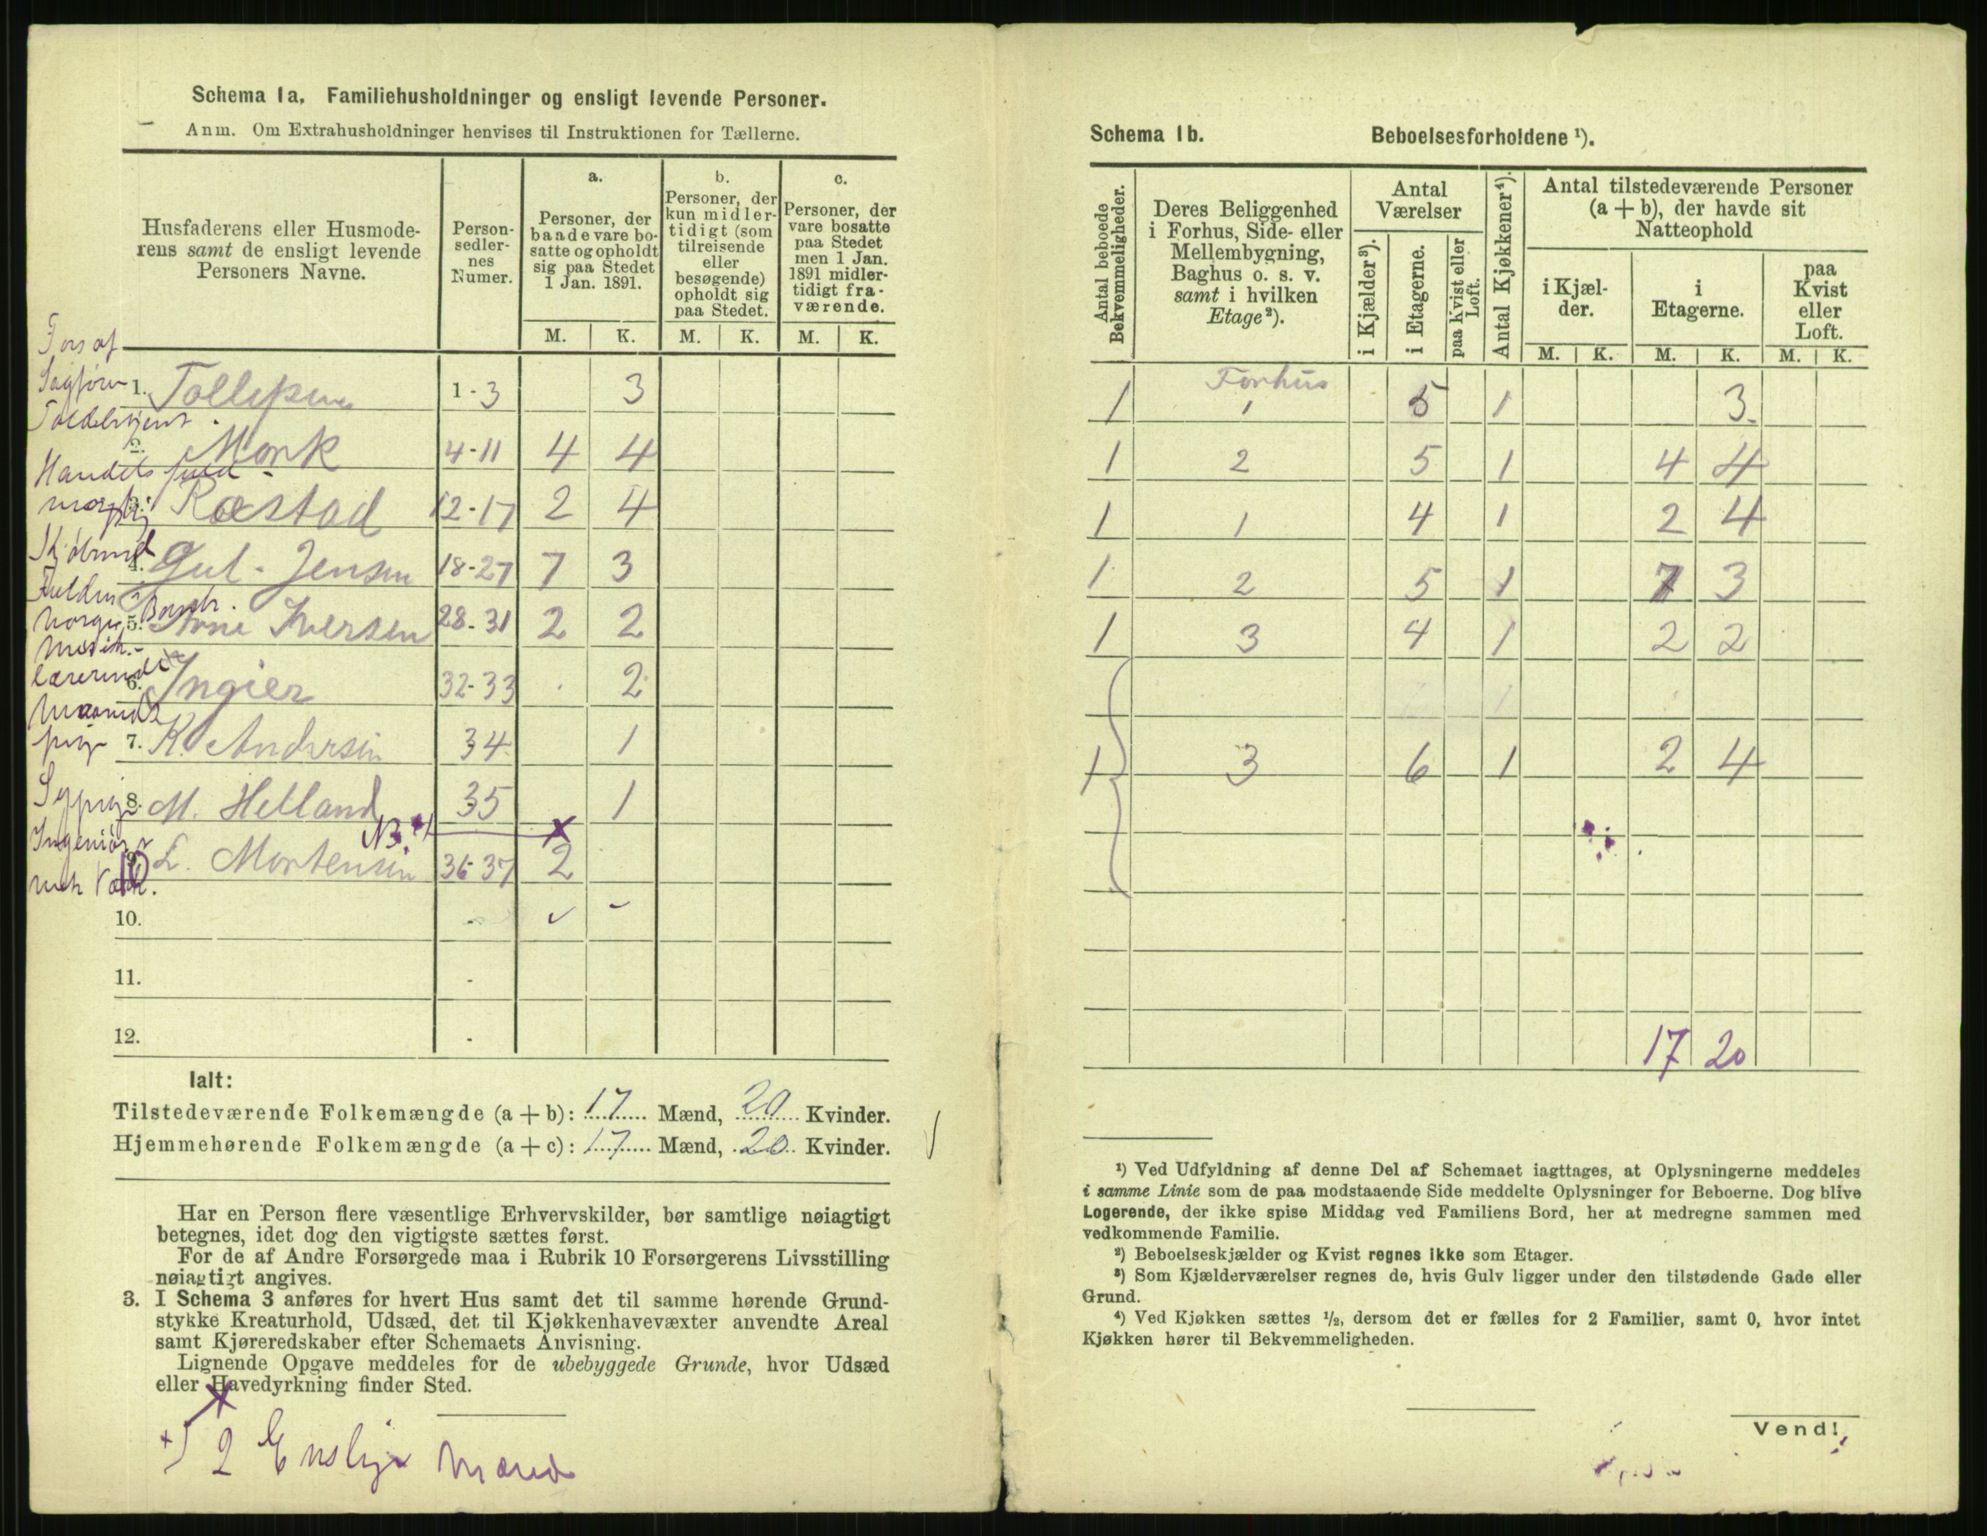 Schema 1a. Familiehusholdninger og ensligt levende Personer.
Anm. Om Extrahusholdninger henvises til Instruktionen for Tællerne.
Husfaderens eller Husmoderens samt de ensligt levende Personers Navne.
Personsedlernes Numer.
a.
Personer, der baade vare bosatte og opholdt sig paa Stedet 1 Jan. 1891.
b.
Personer, der kun midlertidigt (som tilreisende eller besøgende) opholdt sig paa Stedet.
c.
Personer, der vare bosatte paa Stedet men 1 Jan. 1891 midlertidigt fraværende.
M. K. M. K. M. K.
Fors af
Sagfører
1. Tollefsen 1-3 3
2. Mork 4-11 4 4
Handels
3. Ræstad 12-17 2 4
4. Gul. Jensen 18-27 7 3
5. Arne Iversen 28-31 2 2
Musik-
lærerinde
6. Ingier 32-33 2
7. K. Andersen 34 1
Sypige
8. M. Helland 35 1
NB.
Ingeniør
9. L. Mortensen 36-37 2
10. -
11. -
12. -
Ialt:
Tilstedeværende Folkemængde (a + b): 17 Mænd, 20 Kvinder.
Hjemmehørende Folkemængde (a + c): 17 Mænd, 20 Kvinder.
Har en Person flere væsentlige Erhvervskilder, bør samtlige nøiagtigt
betegnes, idet dog den vigtigste sættes først.
For de af Andre Forsørgede maa i Rubrik 10 Forsørgerens Livsstilling
nøiagtigt angives.
3. I Schema 3 anføres for hvert Hus samt det til samme hørende Grund-
stykke Kreaturhold, Udsæd, det til Kjøkkenhavevæxter anvendte Areal
samt Kjøreredskaber efter Schemaets Anvisning.
Lignende Opgave meddeles for de ubebyggede Grunde, hvor Udsæd
eller Havedyrkning finder Sted.
2 Enslige Mænd
Schema 1b. Beboelsesforholdene ¹).
Antal beboede Bekvemmeligheder.
Deres Beliggenhed i Forhus, Side- eller Mellembygning, Baghus o. s. v. samt i hvilken Etage²).
Antal Værelser
i Kjælder³).
i Etagerne.
paa Kvist eller Loft.
Antal Kjøkkener⁴).
Antal tilstedeværende Personer (a + b), der havde sit Natteophold
i Kjælder.
i Etagerne.
paa Kvist eller Loft.
M. K. M. K. M. K.
Forhus
1 1 5 1 3
1 2 5 1 4 4
1 1 4 1 2 4
1 2 5 1 7 3
1 3 4 1 2 2
1 3 6 1 2 4
17 20
¹) Ved Udfyldning af denne Del af Schemaet iagttages, at Oplysningerne meddeles
i samme Linie som de paa modstaaende Side meddelte Oplysninger for Beboerne. Dog blive
Logerende, der ikke spise Middag ved Familiens Bord, her at medregne sammen med
vedkommende Familie.
²) Beboelseskjælder og Kvist regnes ikke som Etager.
³) Som Kjælderværelser regnes de, hvis Gulv ligger under den tilstødende Gade eller
Grund.
⁴) Ved Kjøkken sættes ½, dersom det er fælles for 2 Familier, samt 0, hvor intet
Kjøkken hører til Bekvemmeligheden.
Vend!